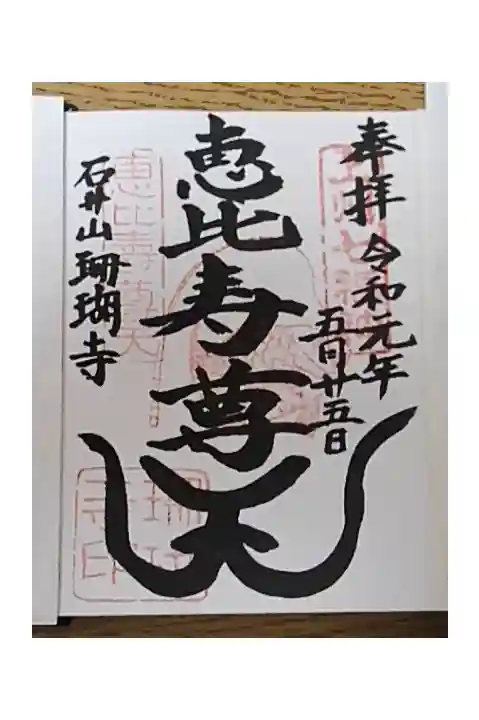 奉拝 令和元年
五月廿五日
恵比寿尊天
石井山珊瑚寺
恵比寿尊天